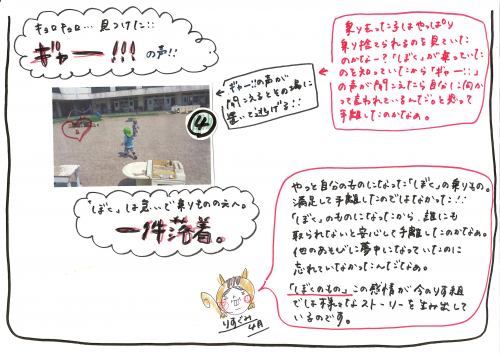 キョロキョロ…見つけた!!
ギャー!!! の声!!
乗りおった子はやっぱり
乗り捨てられるのを見ていた
のかなー?「ぼく」が乗っていた
のを知っていたから「ギャー!!」
の声が聞こえたら自分に向か
って言われているんだっと思って
手離したのかなぁ。
ギャー!!の声が
聞こえるとその場に
置いて逃げる!!
④
「ぼく」は急いで乗りものの元へ。
一件落着。
やっと自分のものになった「ぼく」の乗りもの。
満足して手離したのではなかった!!
「ぼく」のものになったから、誰にも
取られないと安心して手離したのかなぁ。
他のあそびに夢中になっていたのに
忘れていなかったんだなぁ。
「ぼくのもの」この感情が今のりす組
では様々なストーリーを生み出して
いるのです。
りすぐみ
4月